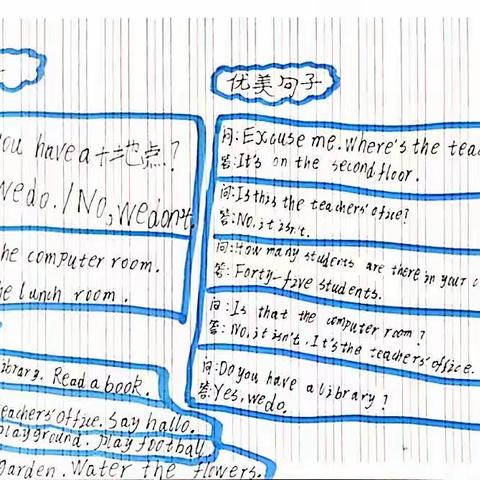 优美句子
ou have a+地点?
we do./No, we don't.
he computer room.
he lunch room.
ibrary. Read a book.
eachers' office. Say hallo.
playground. play footbay
garden. Water the flowers.
问:Excuse me. Where's the tea
答:It's on the second floor.
问:Is this the teachers' ofice?
答:No, it isn't.
问:How many students are there in your c
答:Forty-five students.
问:Is that the computer room?
答:No, it isn't. It's the teachers' office.
问:Do you have a library?
答:Yes, we do.